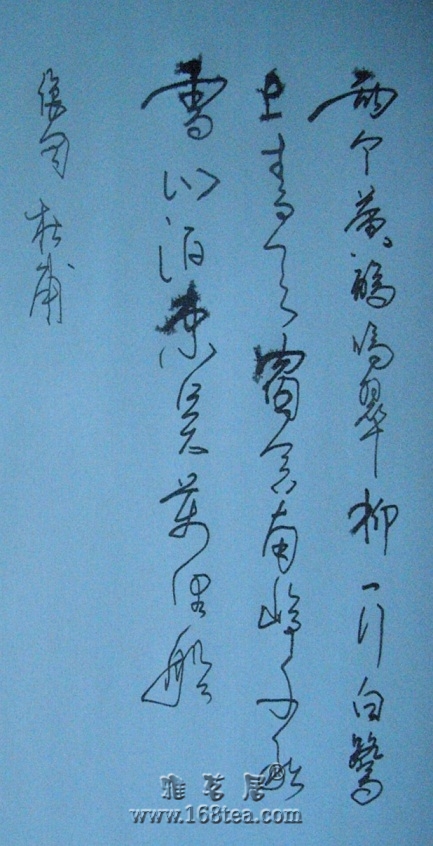 两个黄鹂鸣翠柳一行白鹭
上青天窗含南岭千秋
雪门泊东吴萬里船
杜甫
雅茗居
www.168tea.com